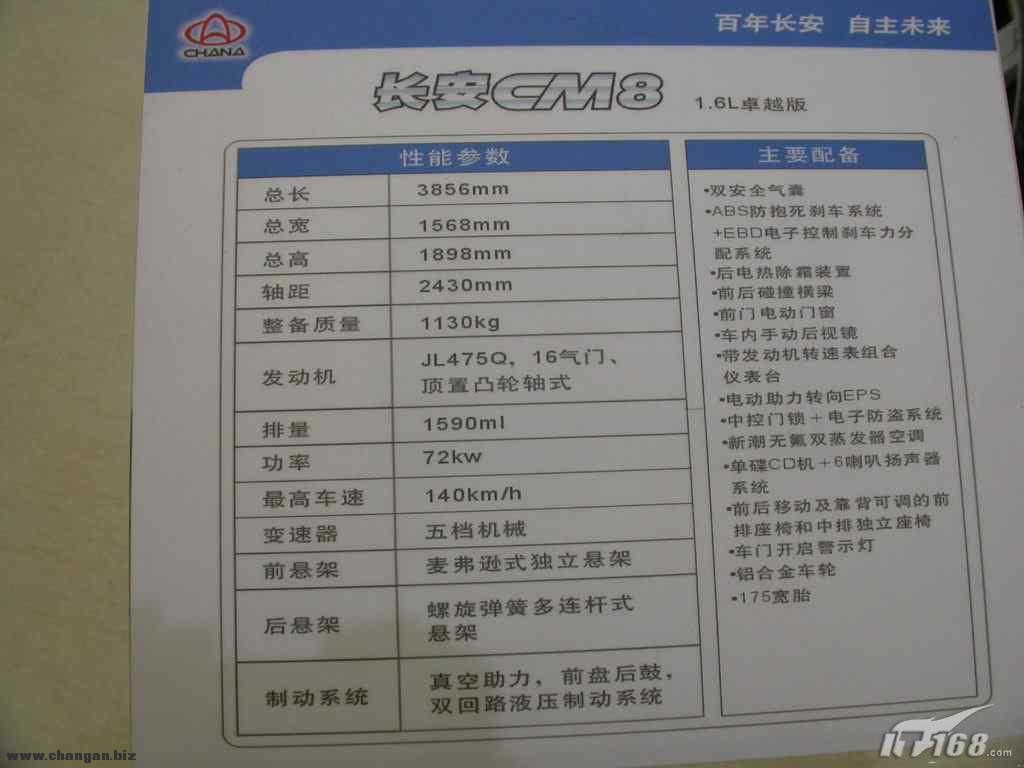 CHANA
百年长安 自主未来
长安CM8 1.6L卓越版
性能参数
总长 3856mm
总宽 1568mm
总高 1898mm
轴距 2430mm
整备质量 1130kg
发动机 JL475Q，16气门、
顶置凸轮轴式
排量 1590ml
功率 72kw
最高车速 140km/h
变速器 五档机械
前悬架 麦弗逊式独立悬架
后悬架 螺旋弹簧多连杆式
悬架
制动系统 真空助力，前盘后鼓，
双回路液压制动系统
主要配备
•双安全气囊
•ABS防抱死刹车系统
+EBD电子控制刹车力分
配系统
•后电热除霜装置
•前后碰撞横梁
•前门电动门窗
•车内手动后视镜
•带发动机转速表组合
仪表台
•电动助力转向EPS
•中控门锁＋电子防盗系统
•新潮无氟双蒸发器空调
•单碟CD机＋6喇叭扬声器
系统
•前后移动及靠背可调的前
排座椅和中排独立座椅
•车门开启警示灯
•铝合金车轮
•175宽胎
www.changan.biz
IT168.com